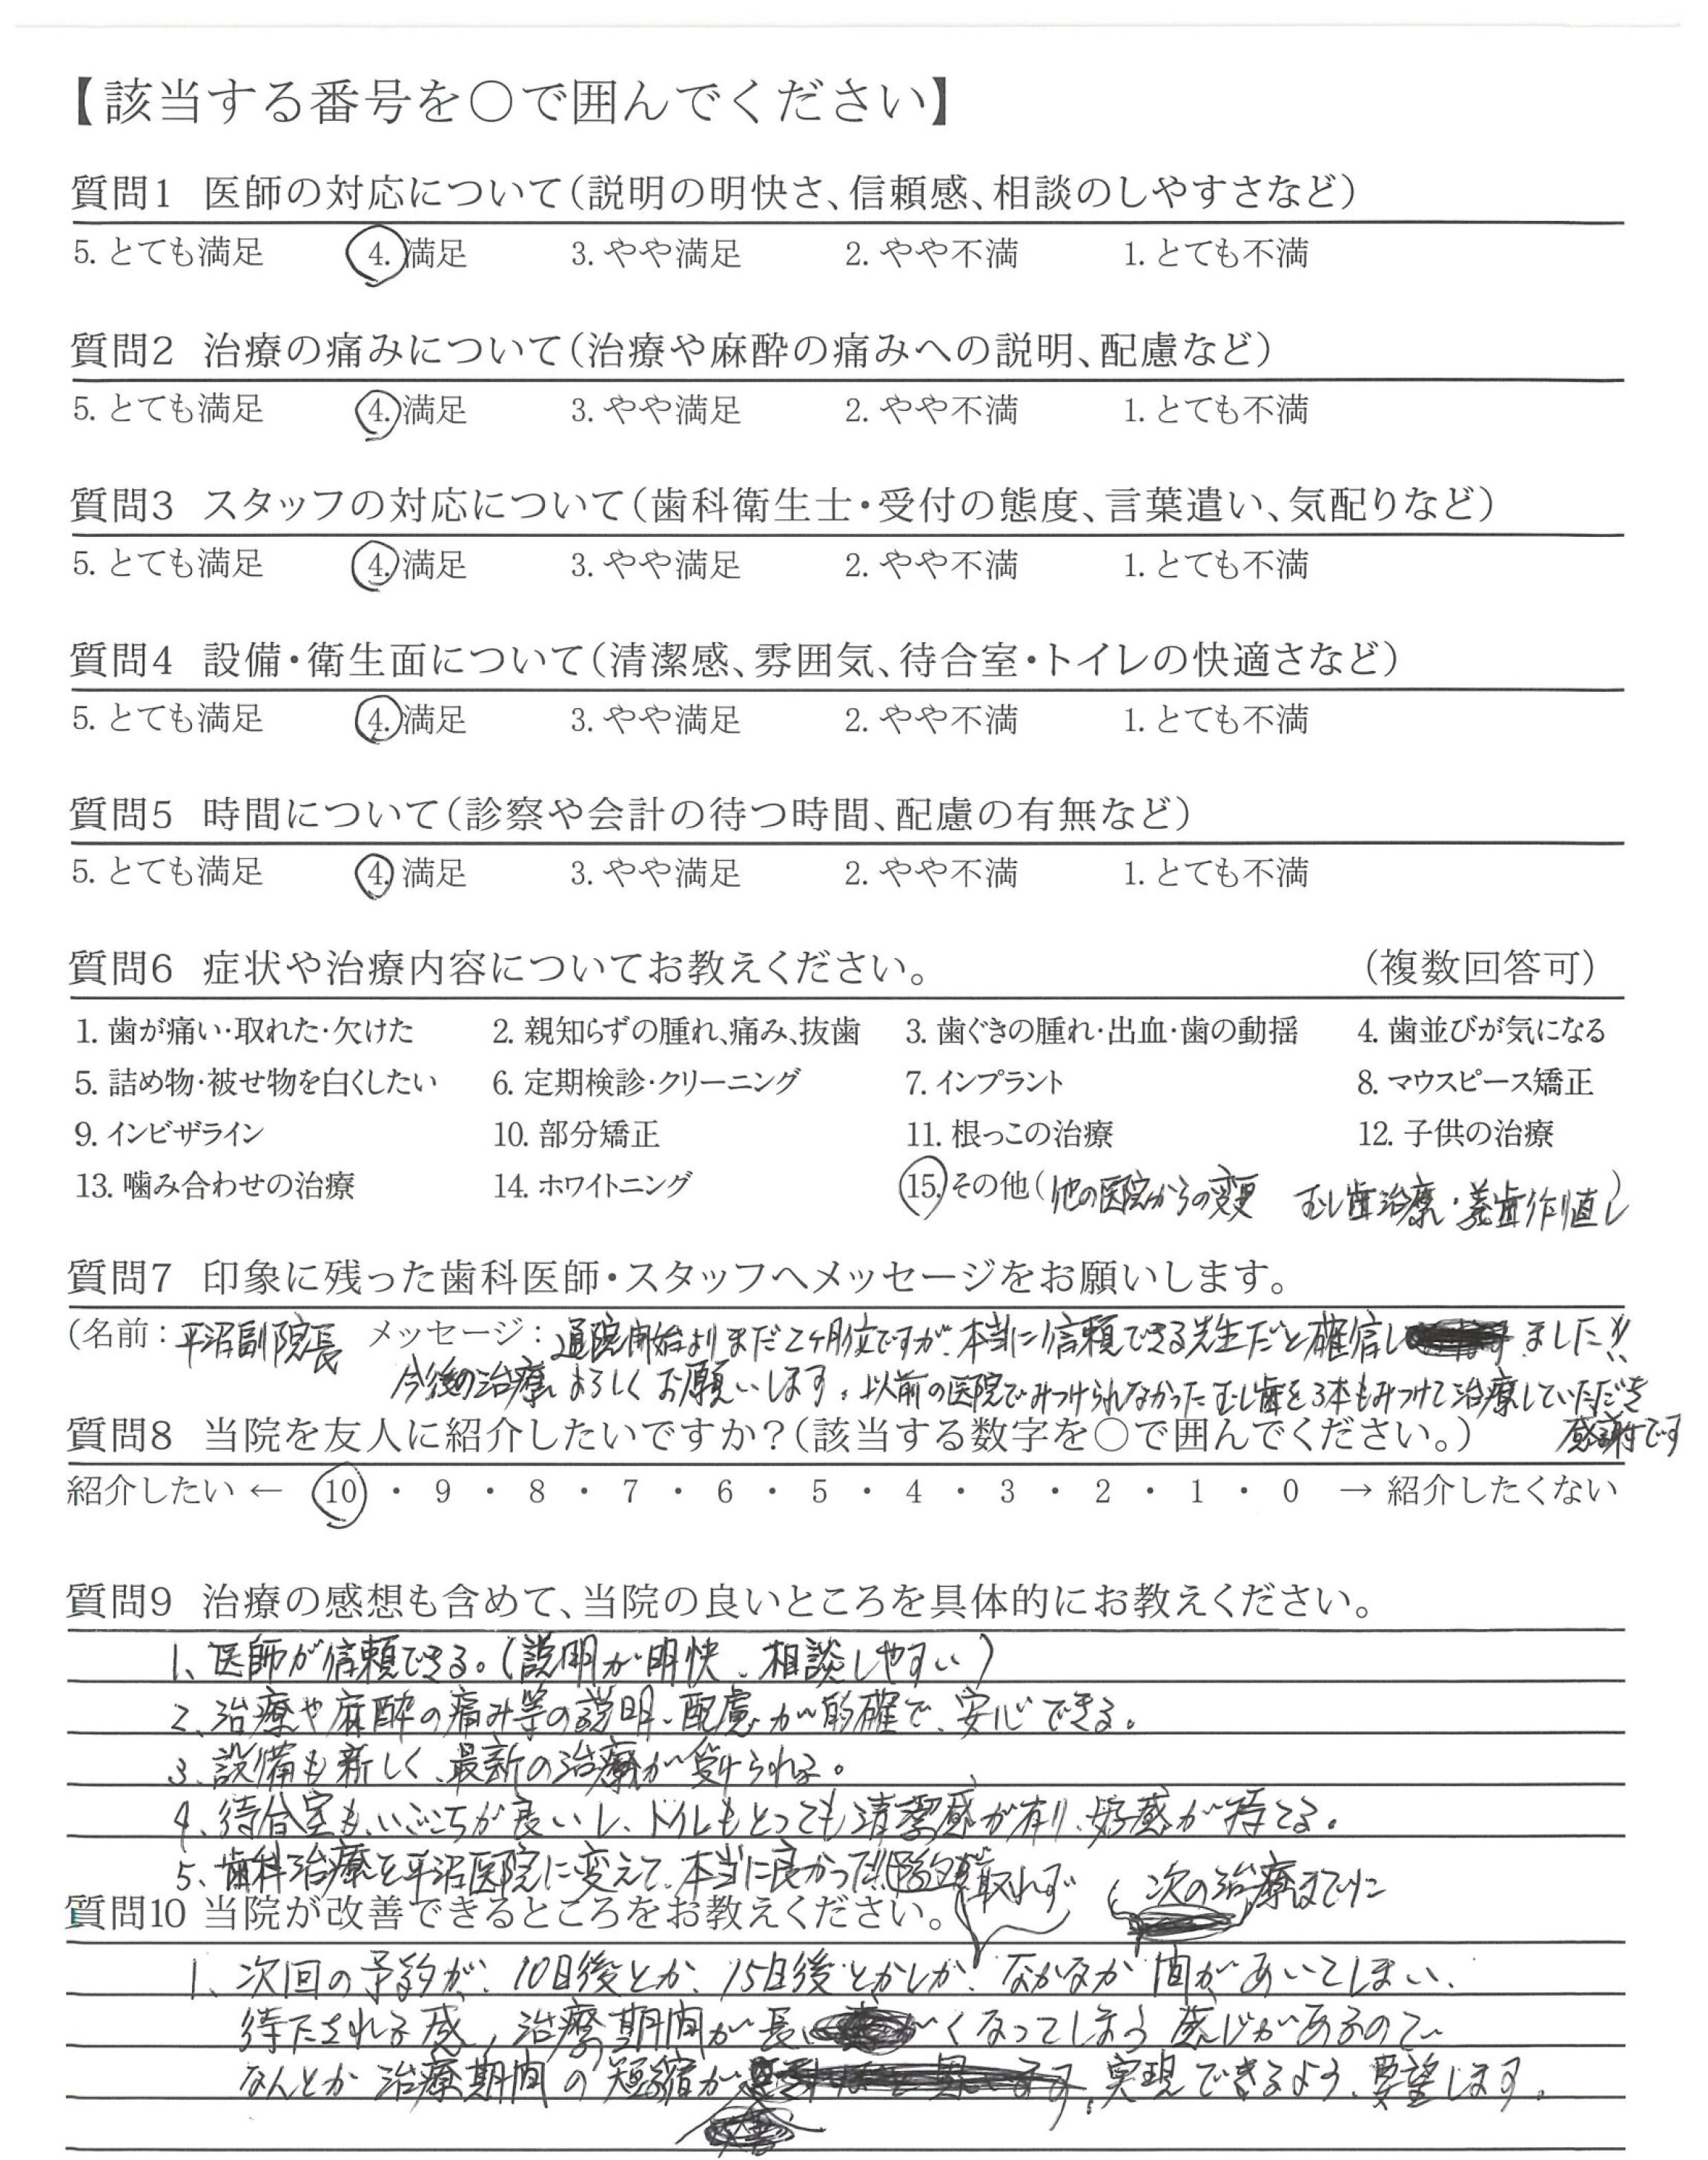 【該当する番号を○で囲んでください】
質問1 医師の対応について(説明の明快さ、信頼感、相談のしやすさなど)
5. とても満足 4. 満足 3. やや満足 2. やや不満 1. とても不満
質問2 治療の痛みについて(治療や麻酔の痛みへの説明、配慮など)
5. とても満足 4. 満足 3. やや満足 2. やや不満 1. とても不満
質問3 スタッフの対応について(歯科衛生士・受付の態度、言葉遣い、気配りなど)
5. とても満足 4. 満足 3. やや満足 2. やや不満 1. とても不満
質問4 設備・衛生面について(清潔感、雰囲気、待合室・トイレの快適さなど)
5. とても満足 4. 満足 3. やや満足 2. やや不満 1. とても不満
質問5 時間について(診察や会計の待つ時間、配慮の有無など)
5. とても満足 4. 満足 3. やや満足 2. やや不満 1. とても不満
質問6 症状や治療内容についてお教えください。 (複数回答可)
1. 歯が痛い・取れた・欠けた 2. 親知らずの腫れ、痛み、抜歯 3. 歯ぐきの腫れ・出血・歯の動揺 4. 歯並びが気になる
5. 詰め物・被せ物を白くしたい 6. 定期検診・クリーニング 7. インプラント 8. マウスピース矯正
9. インビザライン 10. 部分矯正 11. 根っこの治療 12. 子供の治療
13. 噛み合わせの治療 14. ホワイトニング 15. その他(他の医院からの変更 むし歯治療・差歯作り直し)
質問7 印象に残った歯科医師・スタッフへメッセージをお願いします。
(名前:平沼副院長 メッセージ:通院開始よりまだ2ヶ月位ですが、本当に信頼できる先生だと確信しました!!
今後の治療よろしくお願いします。以前の医院でみつけられなかったむし歯を3本もみつけて治療していただき
感謝です
質問8 当院を友人に紹介したいですか?(該当する数字を○で囲んでください。)
紹介したい ← 10 ・ 9 ・ 8 ・ 7 ・ 6 ・ 5 ・ 4 ・ 3 ・ 2 ・ 1 ・ 0 → 紹介したくない
質問9 治療の感想も含めて、当院の良いところを具体的にお教えください。
1、医師が信頼できる。(説明が明快、相談しやすい)
2、治療や麻酔の痛み等の説明、配慮が的確で、安心できる。
3、設備も新しく、最新の治療が受けられる。
4、待合室も、いごこちが良いし、トイレもとっても清潔感が有り、好感が持てる。
5、歯科治療を平沼医院に変えて、本当に良かった!!
予約が取れず 次の治療までに
質問10 当院が改善できるところをお教えください。
1、次回の予約が、10日後とか、15日後とかしか、なかなか間があいてしまい、
待たされる感、治療期間が長くなってしまう感じがあるので
なんとか治療期間の短縮が、実現できるよう、要望します。